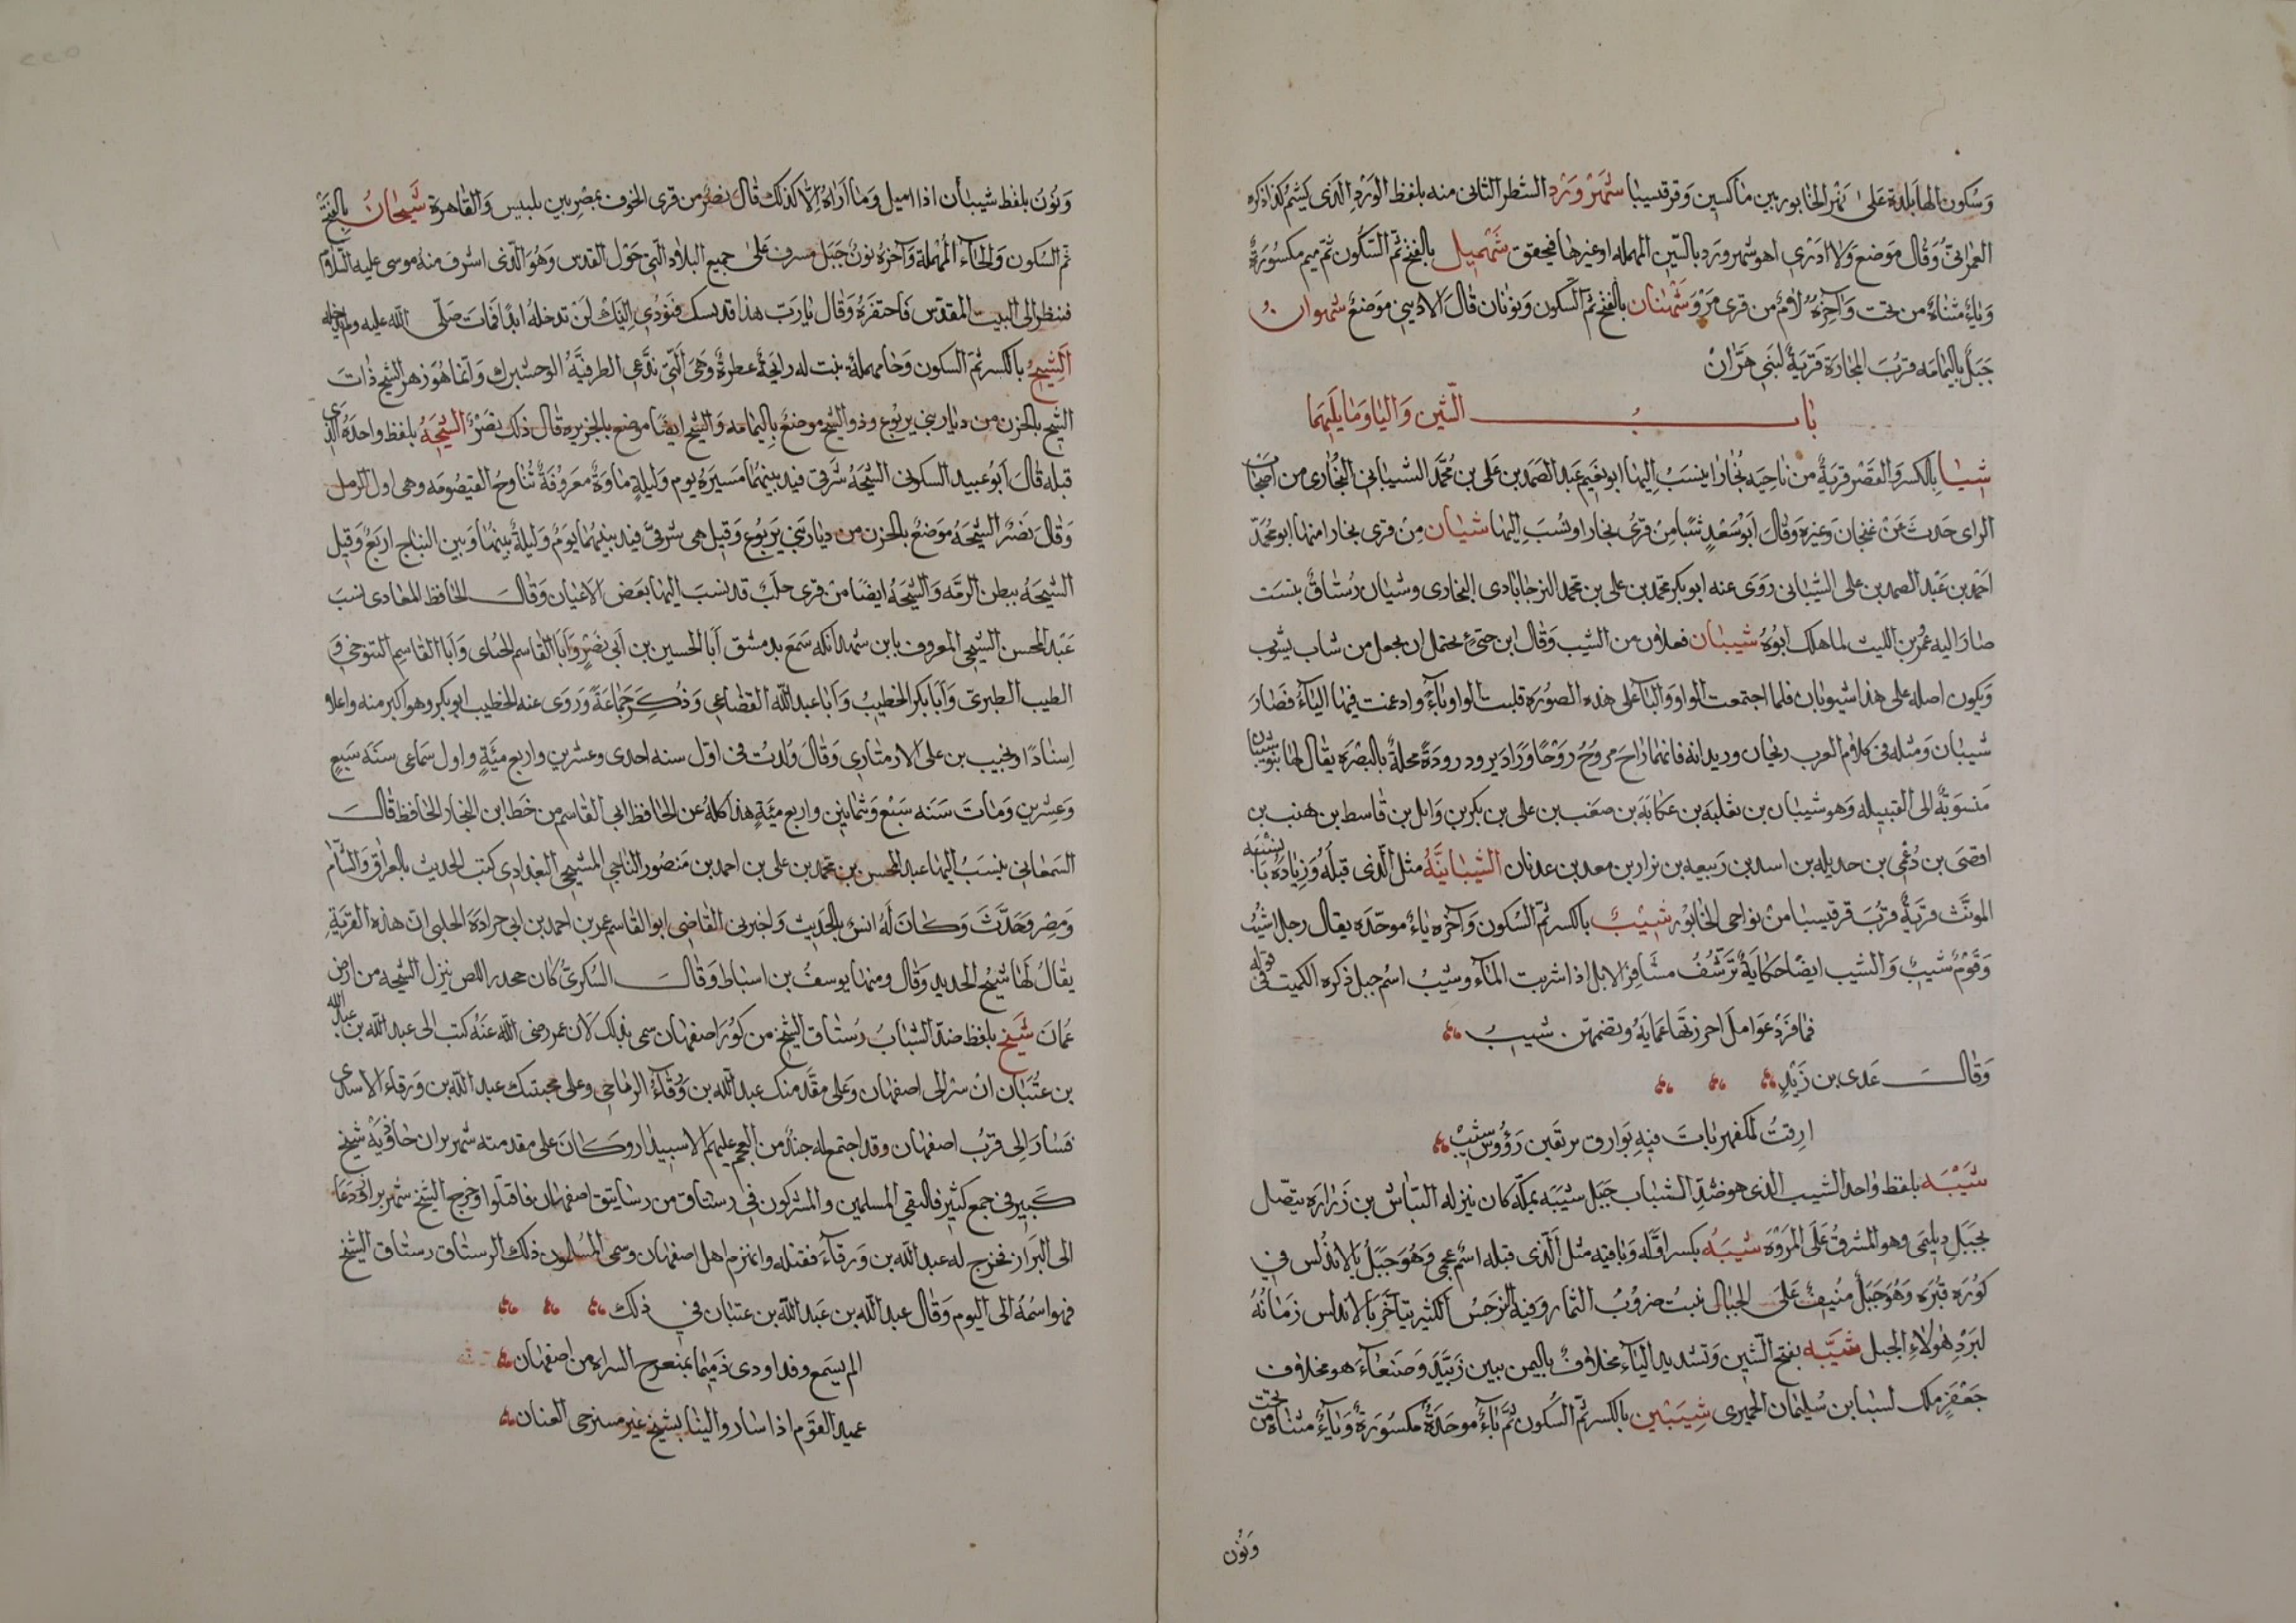 وسكون الها بلدة على نهر الخابور بين ماكسين وقرقيسيا شهرورد الشطر الثاني منه بلفظ الورد الذي يشم كذا ذكره
العمراني وقال موضع ولا ادري اهو سهرورد بالسين المهملة او غيرها فيحقق شهميل بالفتح ثم السكون ثم ميم مكسورة
وياء مثناة من تحت وآخره لام من قرى مرو شهنان بالفتح ثم السكون ونونان قال الاديبي موضع شهوان
جبل باليمامه قرب المجازة قرية لبني هزان
باب الشين واليا وما يليهما
شيا بالكسر والقصر قرية من ناحية بخارا ينسب اليها ابو نعيم عبد الصمد بن علي بن محمد الشيباني البخاري من اصحاب
الراي حدث عن غنجان وغيره وقال ابو سعد شيا من قرى بخارا ونسب اليها شيان من قرى بخارا منها ابو محمد
احمد بن عبد الصمد بن علي الشيباني روى عنه ابو بكر محمد بن علي بن محمد النرجاباذي البخاري وشيان رستاق ببست
صار اليه عمرو بن الليث لما هلك ابوه شيبان فعلان من الشيب وقال ابن جني يحتمل ان يجعل من شاب يشوب
ويكون اصله على هذا شيوبان فلما اجتمعت الواو واليا على هذه الصورة قلبت الواو ياء وادغمت فيها الياء فصار
شيبان ومثله في كلام العرب ريحان وريدانه فانهما راح يروح روحا وراد يرود رودة محلة بالبصرة يقال لها بنو شيبان
منسوبة الى القبيله وهو شيبان بن ثعلبه بن عكابة بن صعب بن علي بن بكر بن وايل بن قاسط بن هنب بن
افصى بن دعمي بن جديله بن اسد بن ربيعه بن نزار بن معد بن عدنان الشيبانية مثل الذي قبله وزيادة يا النسبة
المونث قرية قرب قرقيسيا من نواحي الخابور شيب بالكسر ثم السكون وآخره باء موحدة يقال رجل اشيب
وقوم شيب والشيب ايضا حكاية ترشف مشافر الابل اذا شربت الماء وشيب اسم جبل ذكره الكميت في قوله
فما فزد عوامل احرزتها عماية وتضمهن شيب
وقال عدي بن زيد
ارقت لمكفهر بات فيه بوارق يرتقين رؤوس شيب
شيبه بلفظ واحد الشيب الذي هو ضد الشباب جبل شيبه بمكة كان ينزله النباش بن زرارة يتصل
بجبل ديلمي وهو المشرف على المروة شيبه بكسر اوله وباقيه مثل الذي قبله اسم عجمي وهو جبل بالاندلس في
كورة قبره وهو جبل منيف على الجبال نبت ضروب الثمار وفيه النرجس الكثير يتاخر بالاندلس زمانه
لبرد هواء الجبل شيبه بفتح الشين وتشديد الياء مخلاف باليمن بين زبيد وصنعاء هو مخلاف
جعفر ملك لسبا بن سليمان الحميري شيبين بالكسر ثم السكون ثم باء موحدة مكسورة وياء مثناة من تحت
ونون
ونون بلفظ شيبان اذا اميل وما اراه الا كذلك قال نصر من قرى الحوف بمصر بين بلبيس والقاهرة شيحان بالفتح
ثم السكون والحاء المهملة وآخره نون جبل مشرف على جميع البلاد التي حول القدس وهو الذي اشرف منه موسى عليه السلام
فنظر الى البيت المقدس فاحتقره وقال يا رب هذا قدسك فنودي انك لن تدخله ابدا فمات صلى الله عليه ولم يدخله
الشيح بالكسر ثم السكون وحا مهملة نبت له رايحة عطرة وهي التي تدعى الطرفية الوحشيرك وانما هو زهر الشيح ذات
الشيح بالحزن من ديار بني يربوع وذو الشيح موضع باليمامه والشيح ايضا موضع بالجزيرة قال ذلك نصر الشيحة بلفظ واحدة الذي
قبله قال ابو عبيد السكوني الشيحة شرقي فيد بينهما مسيرة يوم وليلة ماوة معروفة تناوح القيصومه وهي اول الرمل
وقال نصر الشيحه موضع بالحزن من ديار بني يربوع وقيل هي شرقي فيد بينهما يوم وليلة بينها وبين النباج اربع وقيل
الشيحه ببطن الرمه والشيحه ايضا من قرى حلب قد نسب اليها بعض الاعيان وقال الحافظ المعادي نسب
عبد المحسن الشيحي المعروف بابن شهدانكه سمع بدمشق ابا الحسين بن ابي نصر وابا القاسم الحناي وابا القاسم التنوخي و
الطيب الطبري وابا بكر الخطيب وابا عبد الله القضاعي وذكر جماعة وروى عنه الخطيب ابو بكر وهو اكبر منه واعلا
اسنادا ونجيب بن علي الارمنازي وقال ولدت في اول سنه احدى وعشرين واربع مئة واول سماعي سنه سبع
وعشرين ومات سنه سبع وثمانين واربع مئة هذا كله عن الحافظ ابي القاسم من خط ابن النجار الحافظ قال
السمعاني ينسب اليها عبد المحسن بن محمد بن علي بن احمد بن منصور الناجي الشيحي البغدادي كتب الحديث بالعراق والشام
ومصر وحدث وكان له انس بالحديث واخبرني القاضي ابو القاسم عمر بن احمد بن ابي جرادة الحلبي ان هذه القرية
يقال لها شيح الحديد وقال ومنها يوسف بن اسباط وقال السكري كان جحدر اللص ينزل الشيحه من ارض
عمان شيخ بلفظ ضد الشباب رستاق الشيخ من كور اصفهان سمي بذلك لان عمر رضي الله عنه كتب الى عبد الله بن عبد الله
بن عتبان ان سر الى اصفهان وعلى مقدمتك عبد الله بن ورقاء الرياحي وعلى مجنبتك عبد الله بن ورقاء الاسدي
فسار الى قرب اصفهان وقد اجتمع له جند من العجم عليهم الاسبيدار وكان على مقدمته شهربراز جاذويه شيخ
كبير في جمع كثير فالتقى المسلمين والمشركون في رستاق من رساتيق اصفهان فاقتتلوا وخرج الشيخ شهربراز ودعا
الى البراز فخرج له عبد الله بن ورقاء فقتله وانهزم اهل اصفهان وسمى المسلمون ذلك الرستاق رستاق الشيخ
فهو اسمه الى اليوم وقال عبد الله بن عبد الله بن عتبان في ذلك
الم يسمع وقد اودى ذميما بمنعرج السراه من اصفهان
عميد القوم اذا ساروا الينا بشيخ غير مسترخى العنان